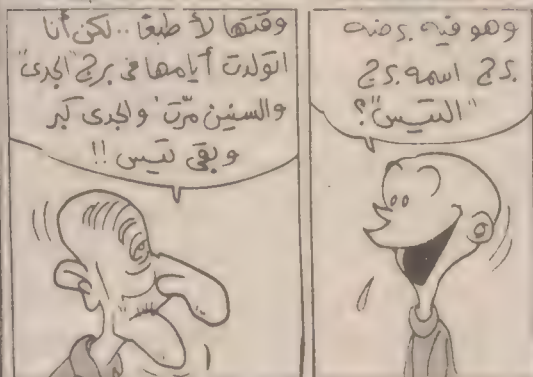 وهو فيه برضه
برج اسمه برج
"التيس"؟
وقتها لأ طبعًا .. لكن أنا
اتولدت أيامها فى برج "الجدى"
والسنين مرّت والجدى كبر
وبقى تيس !!